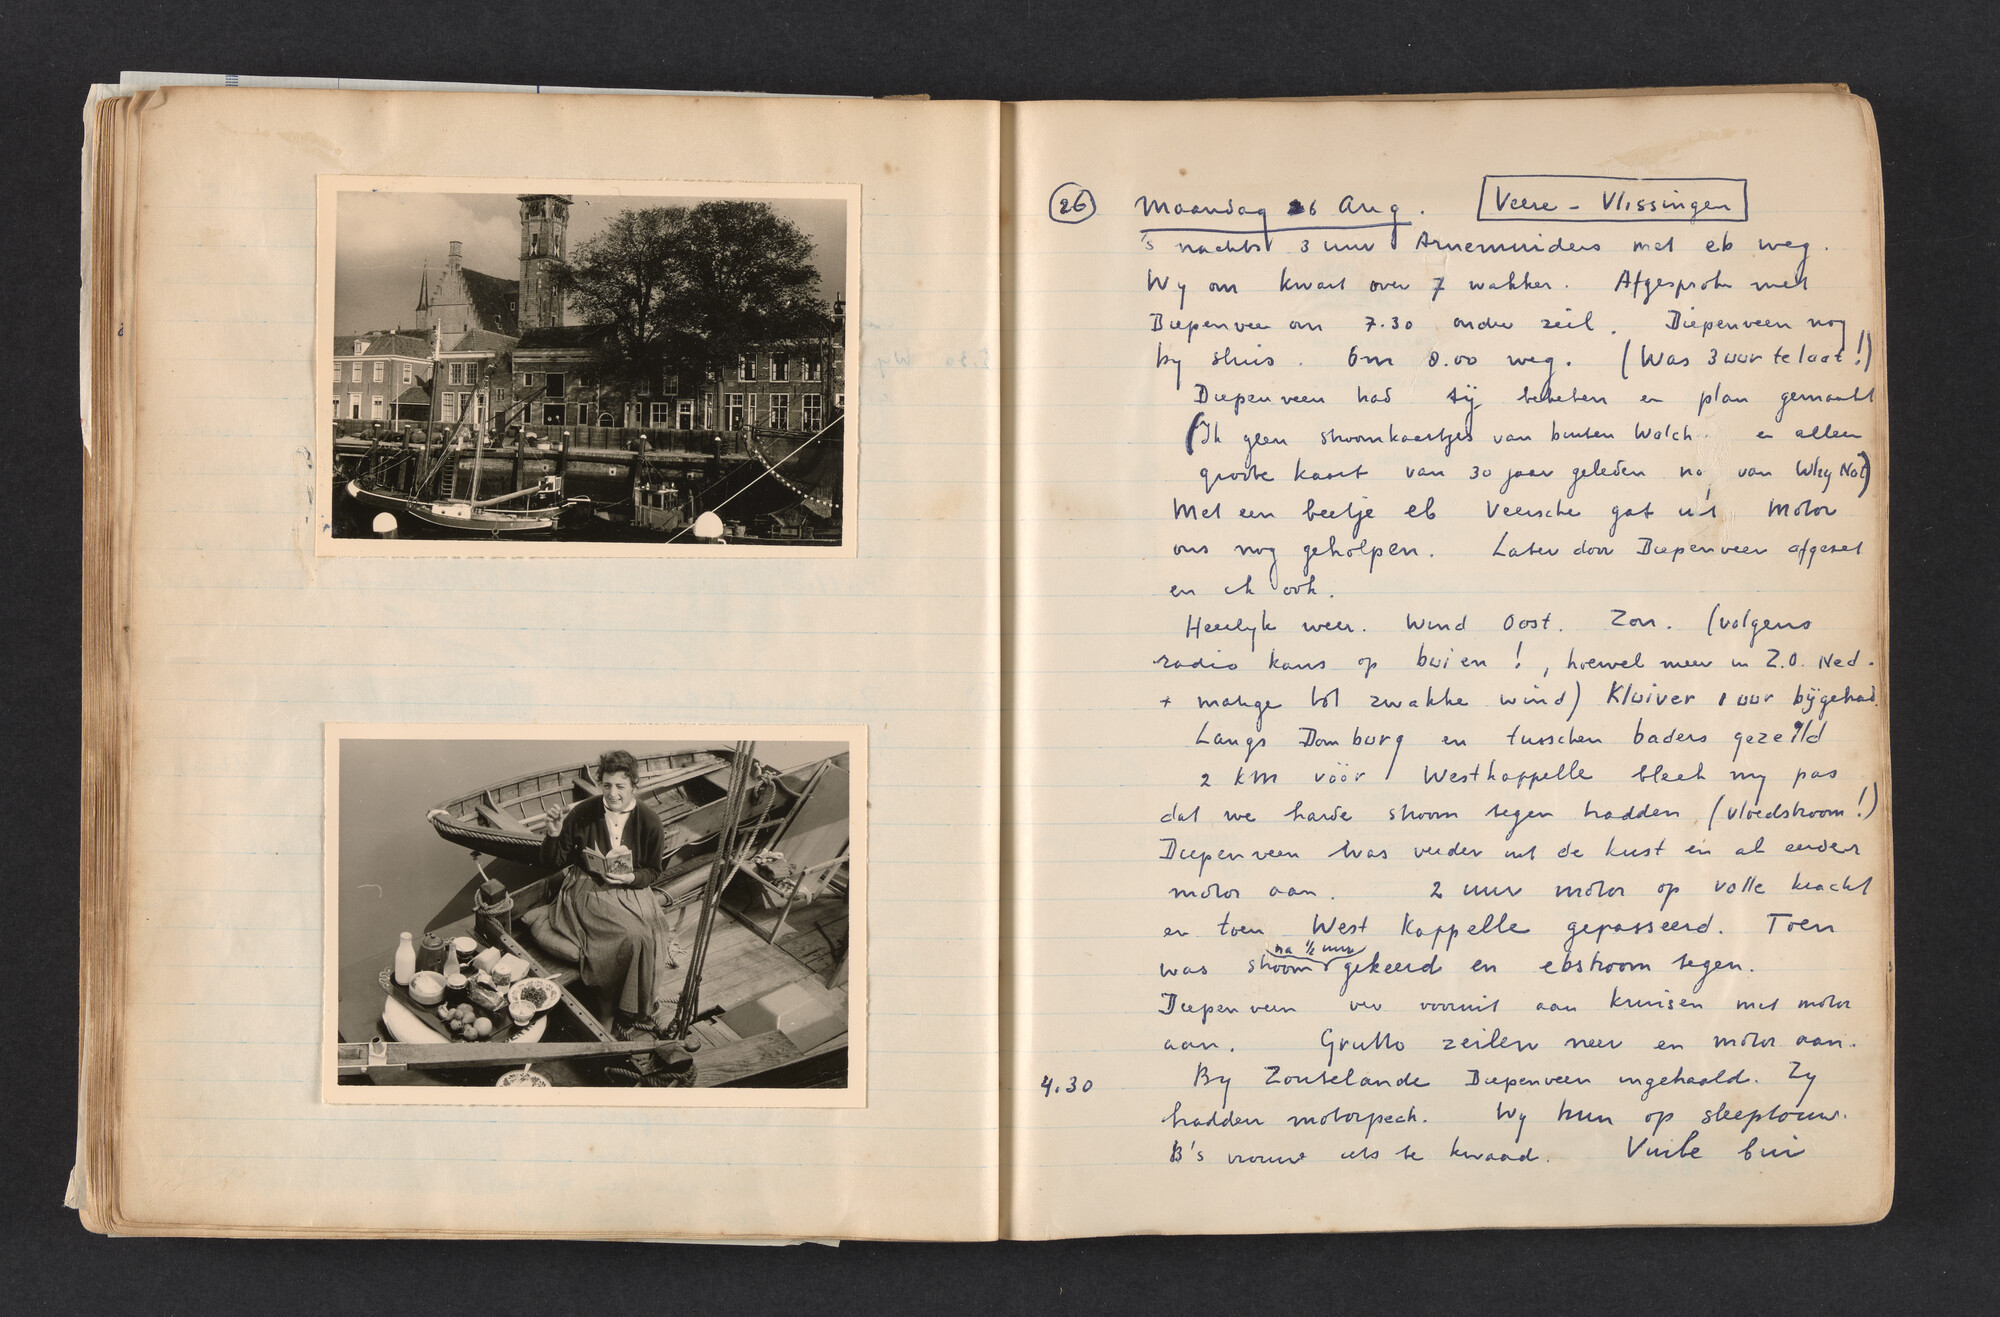 26 Maandag 26 Aug. Veere - Vlissingen
's nachts 3 uur Arnemuiders met eb weg.
Wy om kwart over 7 wakker. Afgesproken met
Diepenveen om 7.30 onder zeil. Diepenveen nog
by sluis. Om 8.00 weg. (Was 3 uur te laat!)
Diepenveen had tij bekeken en plan gemaakt
(Ik geen stroomkaartjes van buiten Walch. en alleen
grote kaart van 30 jaar geleden van Why Not)
Met een beetje eb Veersche gat uit Motor
ons nog geholpen. Later door Diepenveen afgezet
en ik ook.
Heerlyk weer. Wind Oost. Zon. (volgens
radio kans op buien!, hoewel meer in Z.O. Ned.
+ matige tot zwakke wind) Kluiver 1 uur bijgehad.
Langs Domburg en tusschen baders gezeild
2 KM vóór Westkappelle bleek my pas
dat we harde stroom tegen hadden (vloedstroom!)
Diepenveen was verder uit de kust en al eerder
motor aan. 2 uur motor op volle kracht
en toen West Kappelle gepasseerd. Toen
was stroom na ½ uur gekeerd en ebstroom tegen.
Diepenveen ver vooruit aan kruisen met motor
aan. Grutto zeilen neer en motor aan.
4.30 By Zoutelande Diepenveen ingehaald. Zy
hadden motorpech. Wy hun op sleeptouw.
B's vrouw iets te kwaad. Vuile bui